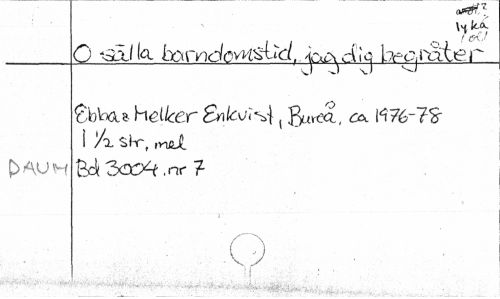 lyká
O sälla barndomstid, jag dig begråter
Ebba & Melker Enkvist, Bureå, ca 1976-78
1 1/2 str, mel
DAUM Bd 3004. nr 7